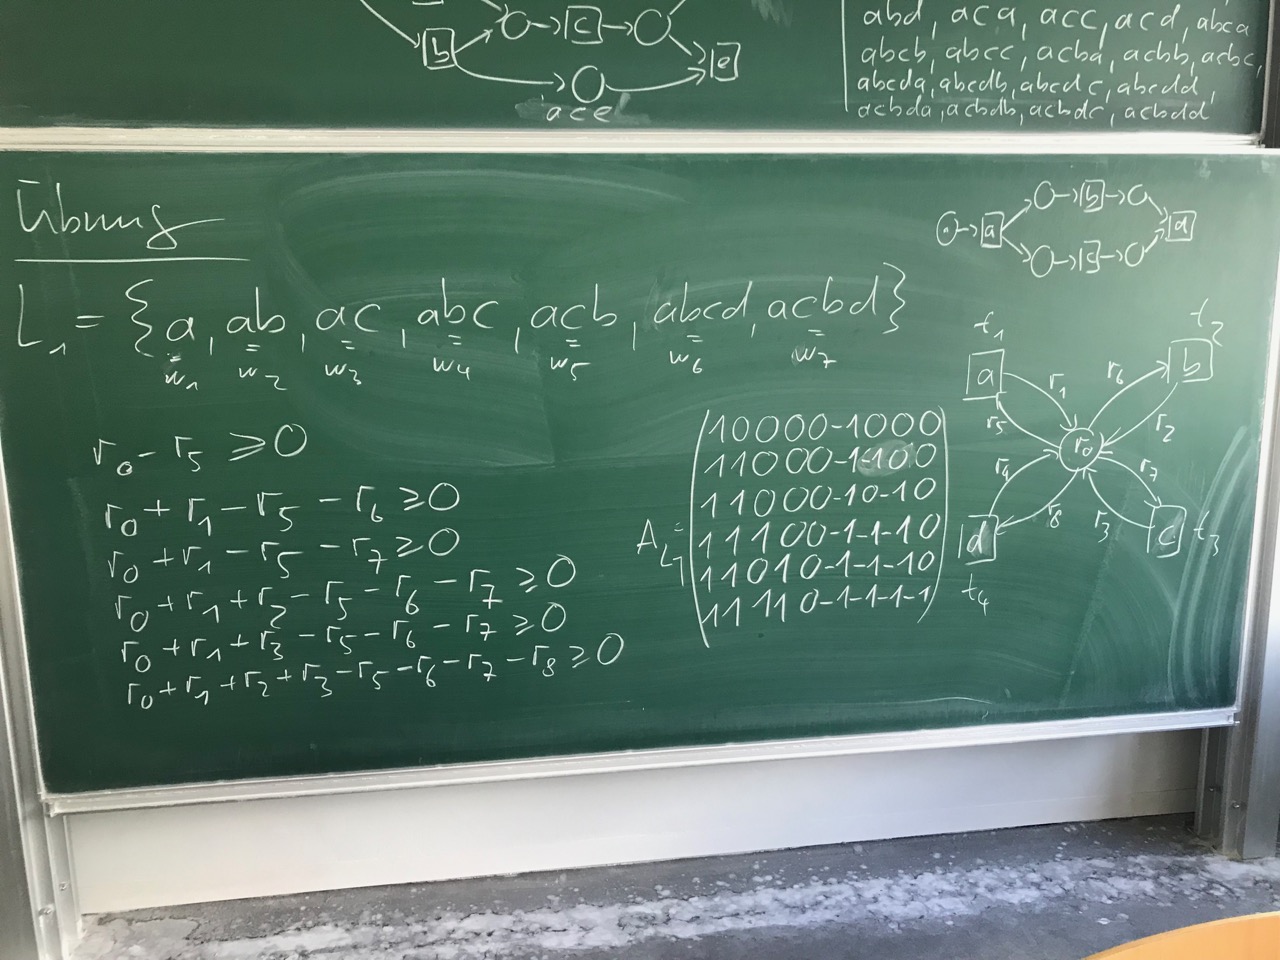 b
c
e
ace
abd, aca, acc, acd, abca
abcb, abcc, acba, acbb, acbc,
abcda, abcdb, abcdc, abcdd,
acbda, acbdb, acbdc, acbdd
Übung
a b c d
L₁ = {a, ab, ac, abc, acb, abcd, acbd}
= = = = = = =
w₁ w₂ w₃ w₄ w₅ w₆ w₇
r₀ - r₅ ≥ 0
r₀ + r₁ - r₅ - r₆ ≥ 0
r₀ + r₁ - r₅ - r₇ ≥ 0
r₀ + r₁ + r₂ - r₅ - r₆ - r₇ ≥ 0
r₀ + r₁ + r₃ - r₅ - r₆ - r₇ ≥ 0
r₀ + r₁ + r₂ + r₃ - r₅ - r₆ - r₇ - r₈ ≥ 0
A_L₁ =
1 0 0 0 0 -1 0 0 0
1 1 0 0 0 -1 -1 0 0
1 1 0 0 0 -1 0 -1 0
1 1 1 0 0 -1 -1 -1 0
1 1 0 1 0 -1 -1 -1 0
1 1 1 1 0 -1 -1 -1 -1
t₁ t₂
a b
r₁ r₆
r₅ r₀ r₂
r₄ r₇
r₈ r₃
d c t₃
t₄